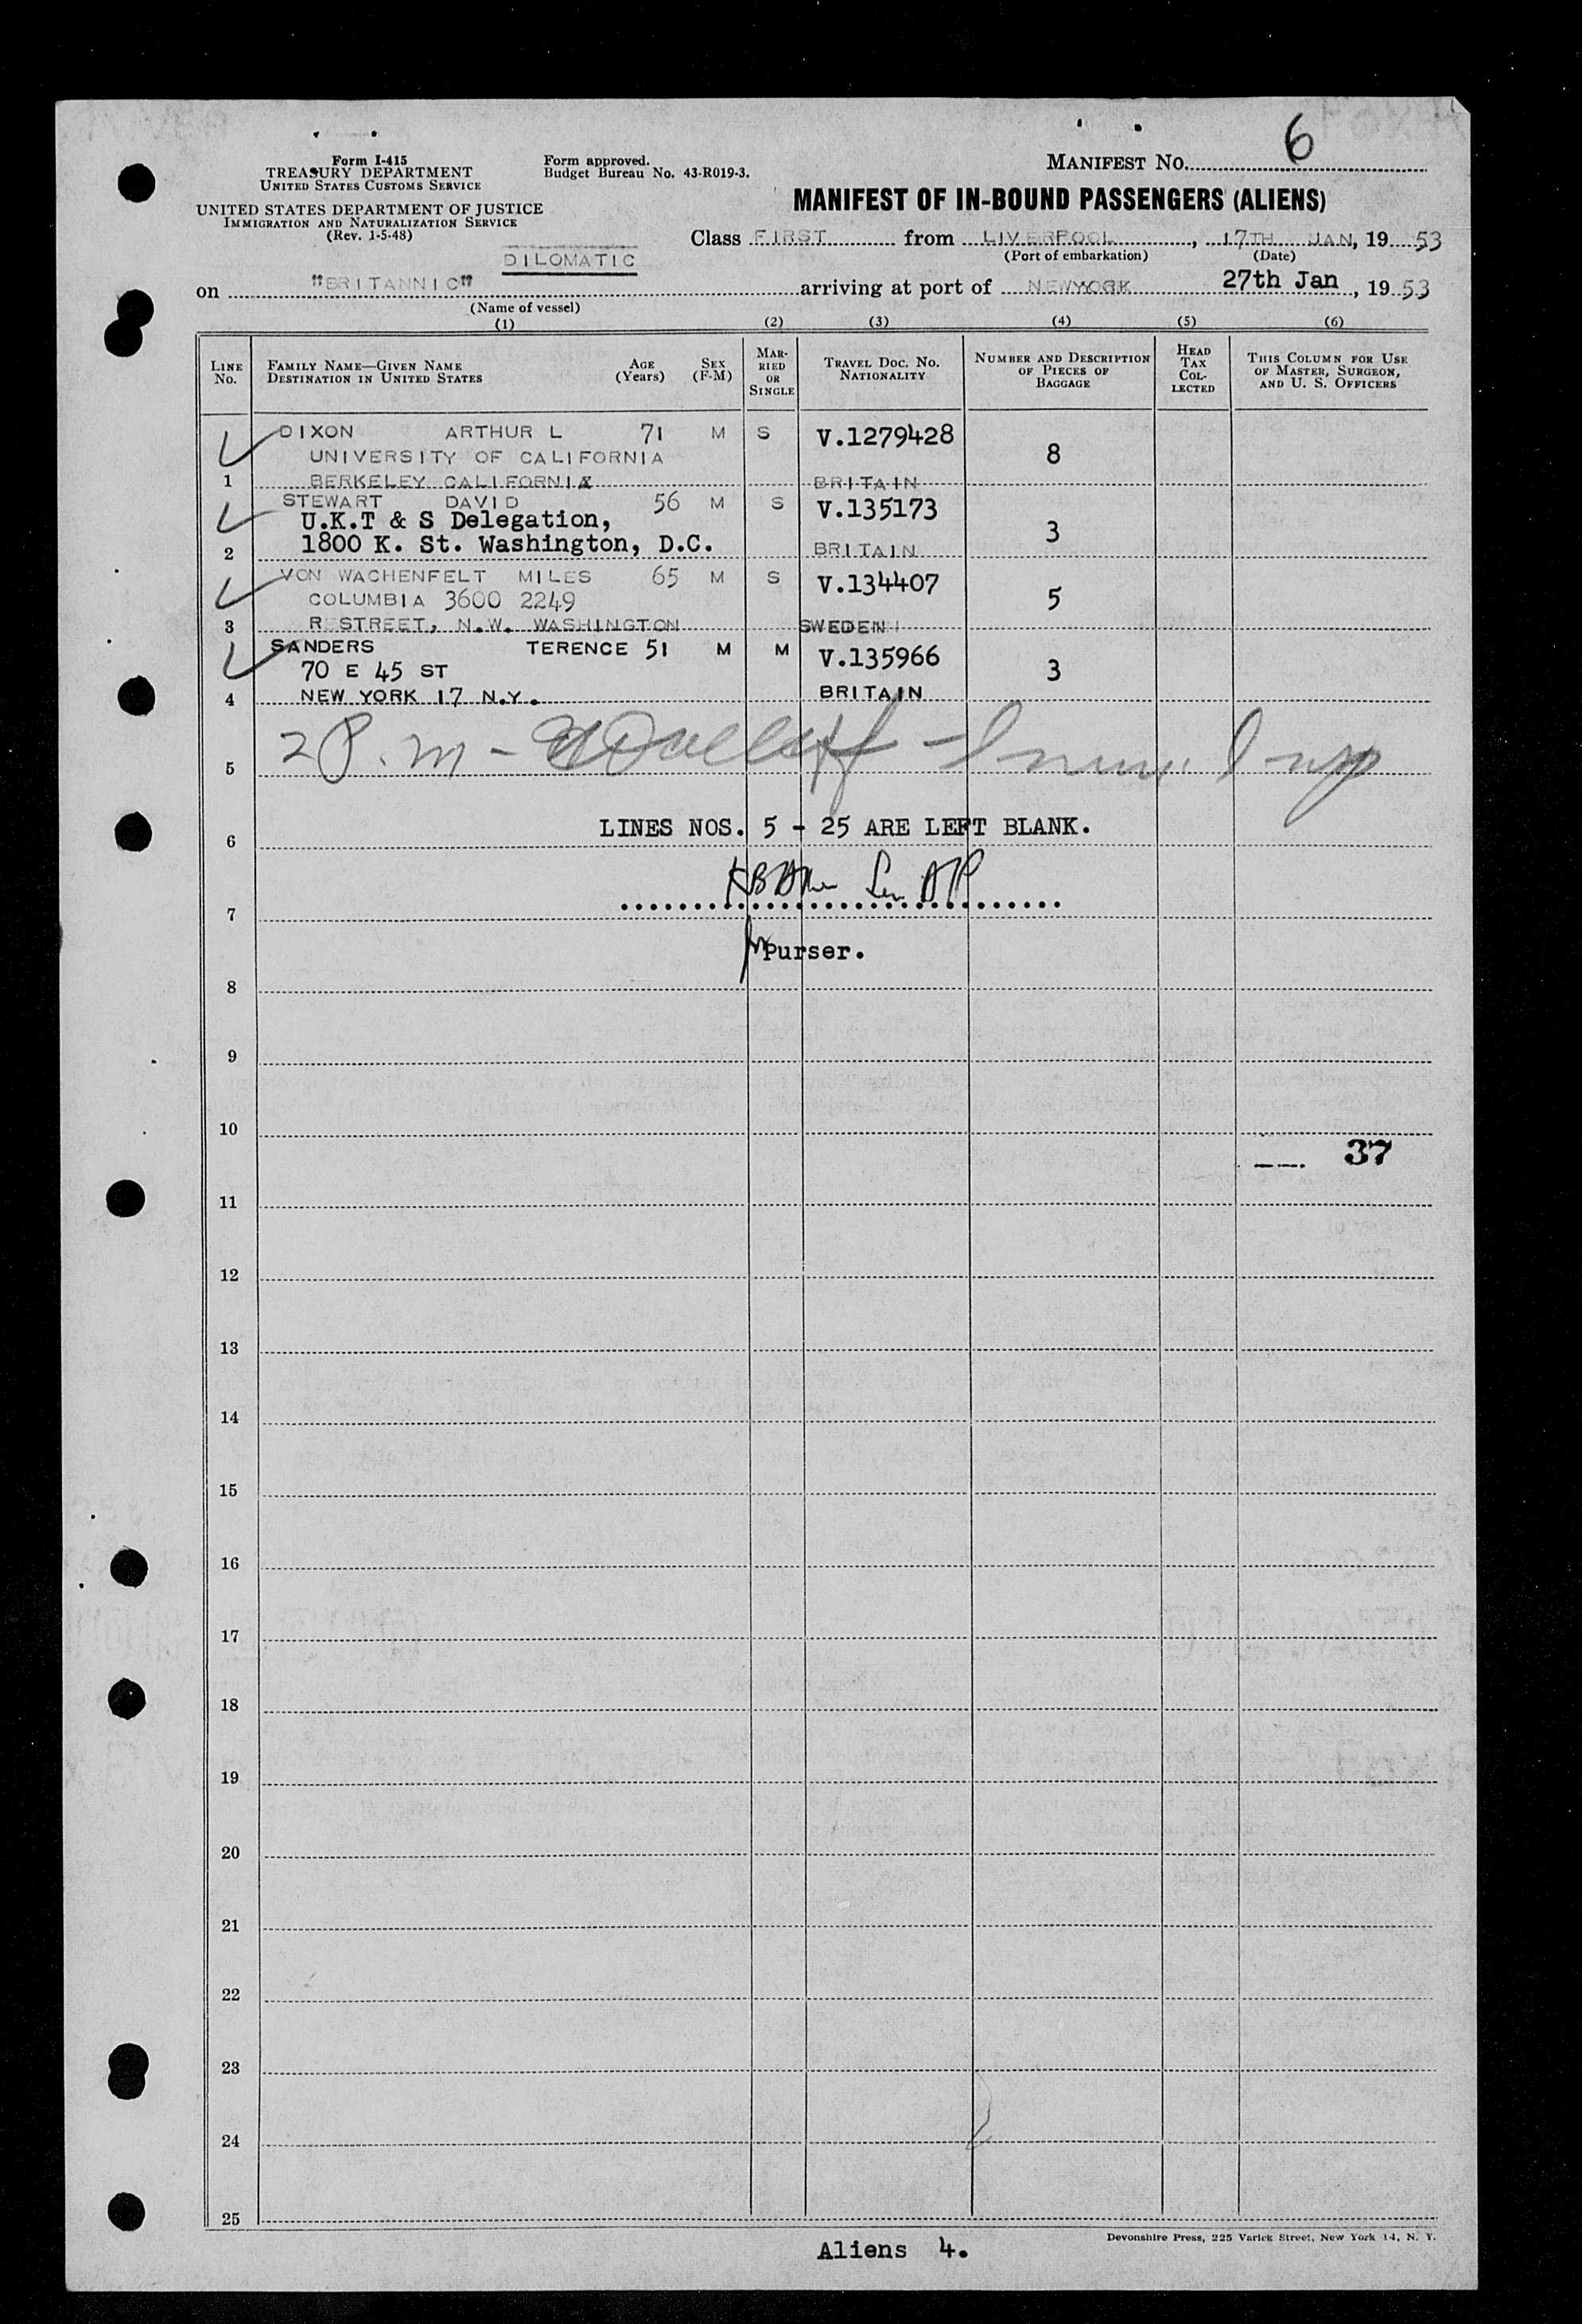 Form I-415
TREASURY DEPARTMENT
UNITED STATES CUSTOMS SERVICE
UNITED STATES DEPARTMENT OF JUSTICE
IMMIGRATION AND NATURALIZATION SERVICE
(Rev. 1-5-48)
Form approved.
Budget Bureau No. 43-R019-3.
MANIFEST NO. 6
MANIFEST OF IN-BOUND PASSENGERS (ALIENS)
Class FIRST from LIVERPOOL, 17TH JAN, 19 53
(Port of embarkation) (Date)
DILOMATIC
on "BRITANNIC" arriving at port of NEWYORK 27th Jan, 19 53
(Name of vessel)
(1) (2) (3) (4) (5) (6)
LINE NO.
FAMILY NAME—GIVEN NAME
DESTINATION IN UNITED STATES
AGE (Years)
SEX (F-M)
MARRIED OR SINGLE
TRAVEL DOC. NO.
NATIONALITY
NUMBER AND DESCRIPTION OF PIECES OF BAGGAGE
HEAD TAX COLLECTED
THIS COLUMN FOR USE OF MASTER, SURGEON, AND U. S. OFFICERS
DIXON ARTHUR L 71 M S V.1279428
UNIVERSITY OF CALIFORNIA 8
1 BERKELEY CALIFORNIA BRITAIN
STEWART DAVID 56 M S V.135173
U.K.T & S Delegation, 3
2 1800 K. St. Washington, D.C. BRITAIN
VON WACHENFELT MILES 65 M S V.134407
COLUMBIA 3600 2249 5
3 R STREET, N.W. WASHINGTON SWEDEN
SANDERS TERENCE 51 M M V.135966
70 E 45 ST 3
4 NEW YORK 17 N.Y. BRITAIN
2 P.m -
5
LINES NOS. 5 - 25 ARE LEFT BLANK.
6
7
Purser.
8
9
10
37
11
12
13
14
15
16
17
18
19
20
21
22
23
24
25
Aliens 4.
Devonshire Press, 225 Varick Street, New York 14, N. Y.